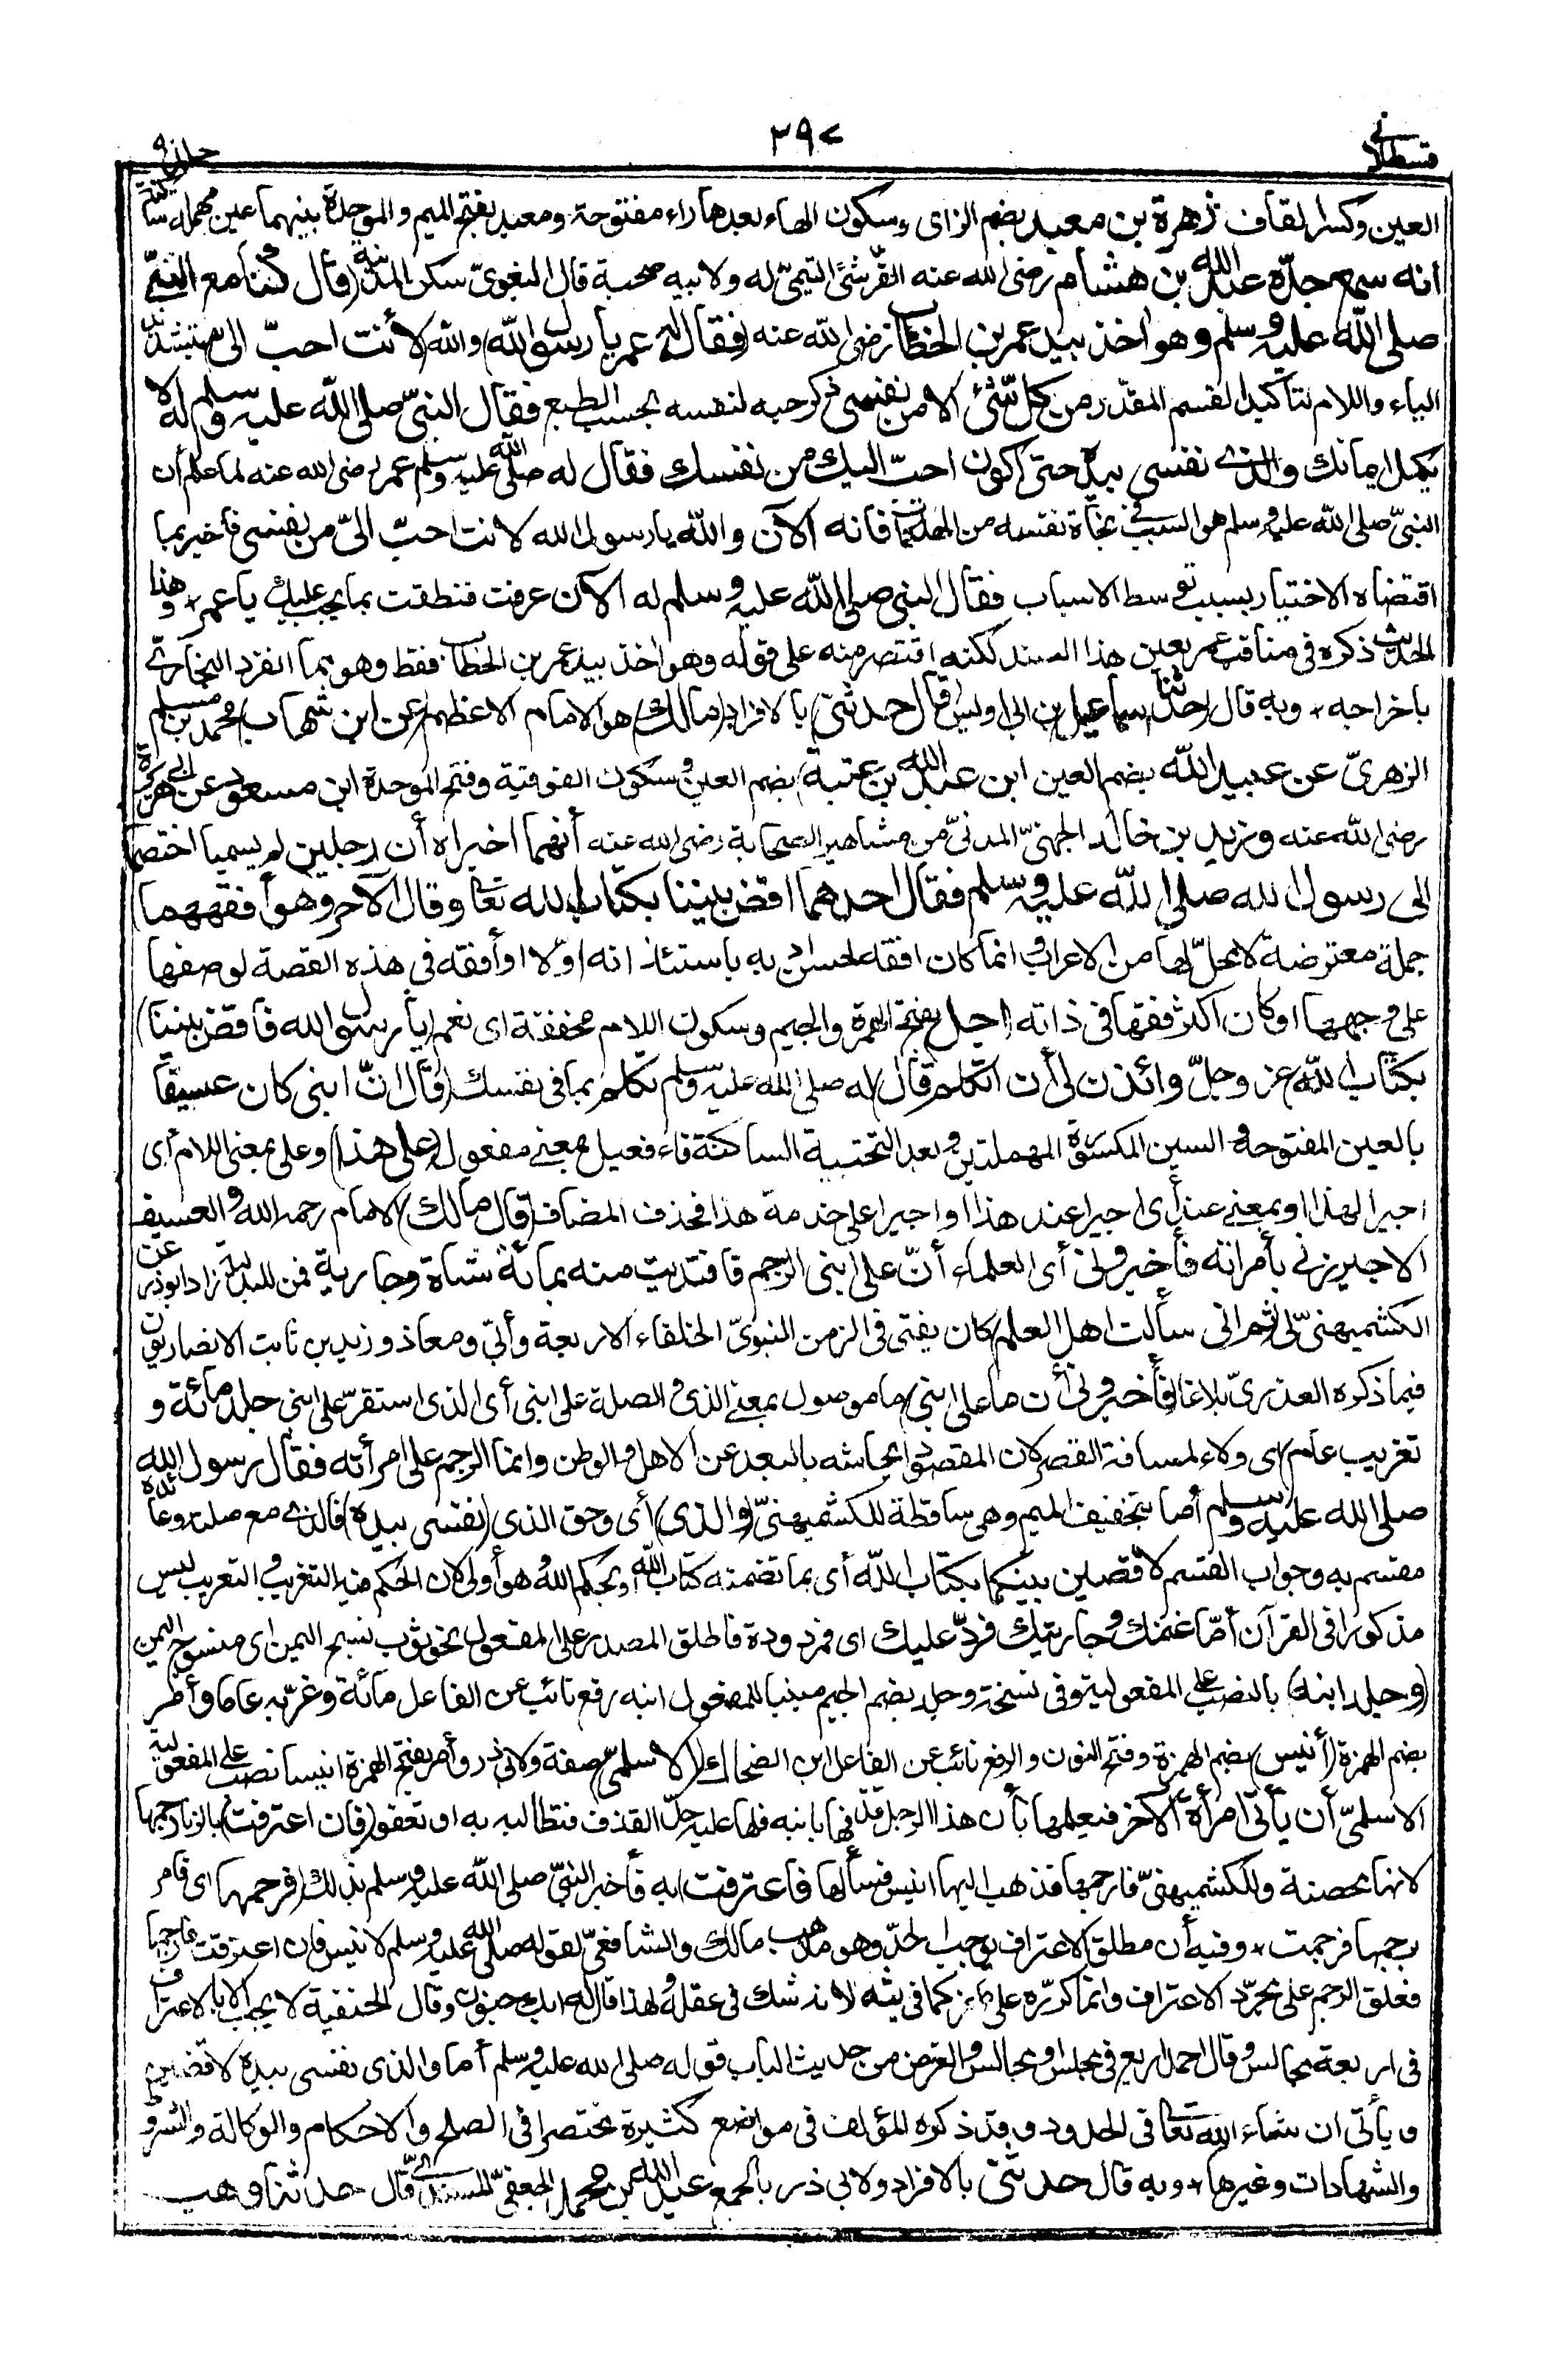 قسطلانی ٣٩٧ جلد ٩
العين وكسر القاف زهرة بن معبد بضم الزاى وسكون الهاء بعدها راء مفتوحة ومعبد بفتح الميم والموحدة بينهما عين مهملة ساكنة
انه سمع جدّه عبد الله بن هشام رضى الله عنه القرشىّ التيمىّ له ولابيه صحبة قال البغوىّ سكن المدينة (قال كنا مع النبىّ
صلى الله عليه وسلم وهو اخذ بيد عمر بن الخطاب رضى الله عنه (فقال له عمر يا رسول الله) والله (لأنت احبّ الىّ بتشديد
الياء واللام لتأكيد القسم المقدّر من كل شئ الا من نفسى ذكر حبه لنفسه بحسب الطبع فقال النبىّ صلى الله عليه وسلم له لا
يكمل ايمانك والذى نفسى بيده حتى اكون احبّ اليك من نفسك فقال له صلى الله عليه وسلم عمر رضى الله عنه لما علم أن
النبىّ صلى الله عليه وسلم هو السبب فى نجاة نفسه من الهلكات فانه الآن والله يا رسول الله لانت احبّ الىّ من نفسى فاخبر بما
اقتضاه الاختيار بسبب توسط الاسباب فقال النبى صلى الله عليه وسلم له الآن عرفت فنطقت بما يجب عليك يا عمر * وهذا
الحديث ذكره فى مناقب عمر بعين هذا السند لكنه اقتصر منه على قوله وهو اخذ بيد عمر بن الخطاب فقط وهو مما انفرد البخارىّ
باخراجه * وبه قال (حدثنا اسماعيل بن ابى اويس قال حدثنى) بالافراد (مالك) هو الامام الاعظم (عن ابن شهاب) محمد بن مسلم
الزهرىّ عن عبيد الله بضم العين ابن عبد الله بن عتبة) بضم العين وسكون الفوقية وفتح الموحدة ابن مسعود عن ابى هريرة
رضى الله عنه وزيد بن خالد الجهنىّ المدنىّ من مشاهير الصحابة رضى الله عنه أنهما اخبراه أن رجلين لم يسميا اختصما
الى رسول الله صلى الله عليه وسلم فقال احدهما اقض بيننا بكتاب الله تعا وقال الآخر وهو أفقههما)
جملة معترضة لا محلّ لها من الاعراب وانما كان افقه لحسن ادبه باستئذانه اوّلا او أفقه فى هذه القصة لوصفها
على وجهها او كان اكثر فقها فى ذاته (اجل بفتح الهمزة والجيم وسكون اللام مخففة اى نعم (يا رسول الله فاقض بيننا)
بكتاب الله عز وجلّ وائذن لى أن اتكلم قال) له صلى الله عليه وسلم تكلم بما فى نفسك (قال انّ ابنى كان عسيفا
بالعين المفتوحة والسين المكسورة المهملتين وبعد التحتية الساكنة فاء فعيل بمعنى مفعول (على هذا) وعلى بمعنى اللام أى
اجيرا لهذا او بمعنى عند أى اجيرا عند هذا او اجيرا على خدمة هذا فحذف المضاف (قال مالك) الامام رحمه الله والعسيف
الاجير زنى بامرأته فأخبرونى أى العلماء أنّ على ابنى الرجم فافتديت منه بمائة شاة وجارية فمن للبدلية زاد ابو ذر عن
الكشميهنىّ لى ثم انى سألت اهل العلم) كان يفتى فى الزمن النبوىّ الخلفاء الاربعة وأبىّ ومعاذ وزيد بن ثابت الانصاريون
فيما ذكره العذرىّ بلاغا فأخبرونى أن ما على ابنى) ما موصول بمعنى الذى والصلة على ابنى أى الذى استقرّ على ابنى جلد مائة و
تغريب عام) اى ولاء لمسافة القصر لان المقصود ايحاشه بالبعد عن الاهل والوطن وانما الرجم على امرأته فقال رسول الله
صلى الله عليه وسلم أما بتخفيف الميم وهى ساقطة للكشميهنىّ (والذى) أى وحق الذى (نفسى بيده) فالذى مع صلته وعائده
مقسم به وجواب القسم لاقضين بينكما بكتاب الله أى بما تضمنه كتاب الله او بحكم الله وهو أولى لان الحكم فيه التغريب والتغريب ليس
مذكورا فى القرآن أمّا غنمك وجاريتك فردّ عليك اى فمردودة فاطلق المصدر على المفعول نحو ثوب نسج اليمن اى منسوج اليمن
(وجلد ابنه) بالنصب على المفعولية وفى نسخة وجلد بضم الجيم مبنيا للمفعول ابنه رفع نائب عن الفاعل مائة وغرّبه عاما وأمر
بضم الهمزة (أنيس) بضم الهمزة وفتح النون والرفع نائب عن الفاعل ابن الضحاك (الاسلمىّ) صفة ولابى ذر وأمر بفتح الهمزة انيسا نصب على المفعولية
الاسلمىّ أن يأتى امرأة الآخر فيعلمها بأن هذا الرجل قذفها بابنه فلها عليه حدّ القذف فتطالبه به او تعفو (فان اعترفت) بالزنا (رجمها
لانها محصنة وللكشميهنىّ فارجمها فذهب اليها انيس فسألها فاعترفت) به فأخبر النبىّ صلى الله عليه وسلم بذلك (فرجمها اى فامر
برجمها فرجمت * وفيه أن مطلق الاعتراف يوجب الحدّ وهو مذهب مالك والشافعىّ لقوله صلى الله عليه وسلم لانيس فان اعترفت فارجمها
فعلق الرجم على مجرّد الاعتراف وانما كرّره على ماعز كما فى حديثه لانه شك فى عقله ولهذا قال له ابك جنون وقال الحنفية لا يجب الا بالاعتراف
فى اربعة مجالس وقال احمد اربع فى مجلس او مجالس والغرض من حديث الباب قوله صلى الله عليه وسلم أما والذى نفسى بيده لاقضين
ويأتى ان شاء الله تعا فى الحدود وقد ذكره المؤلف فى مواضع كثيرة مختصرا فى الصلح والاحكام والوكالة والشروط
والشهادات وغيرها * وبه قال حدثنى بالافراد ولابى ذر بالجمع عبد الله بن محمد الجعفىّ المسندىّ قال حدثنا وهب